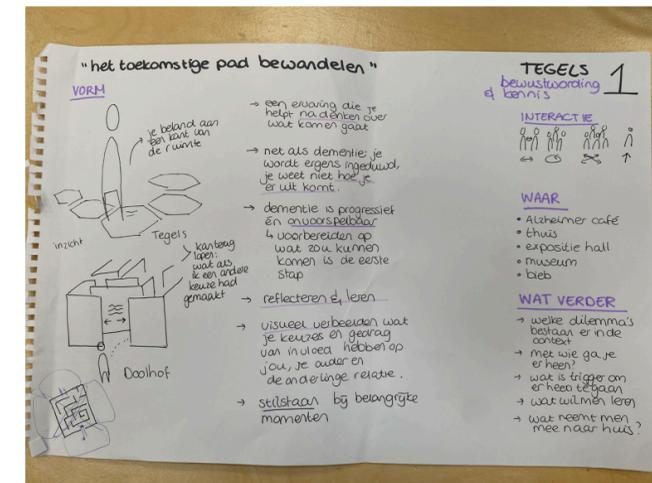 "het toekomstige pad bewandelen"
VORM
je beland aan
één kant van
de ruimte
inzicht
Tegels
kan terug
lopen:
wat als
ik een andere
keuze had
gemaakt
Doolhof
→ een ervaring die je
helpt nadenken over
wat komen gaat
→ net als dementie: je
wordt ergens ingeduwd,
je weet niet hoe je
er uit komt.
→ dementie is progressief
én onvoorspelbaar
↳ voorbereiden op
wat zou kunnen
komen is de eerste
stap
→ reflecteren & leren
→ visueel verbeelden wat
je keuzes en gedrag
van invloed hebben op
jou, je ouder en
de onderlinge relatie.
→ stilstaan bij belangrijke
momenten
TEGELS 1
bewustwording
& kennis
INTERACTIE
WAAR
• Alzheimer café
• thuis
• expositie hall
• museum
• bieb
WAT VERDER
→ welke dilemma's
bestaan er in de
context
→ met wie ga je
er heen?
→ wat is trigger om
er heen te gaan
→ wat wil men leren
→ wat neemt men
mee naar huis?